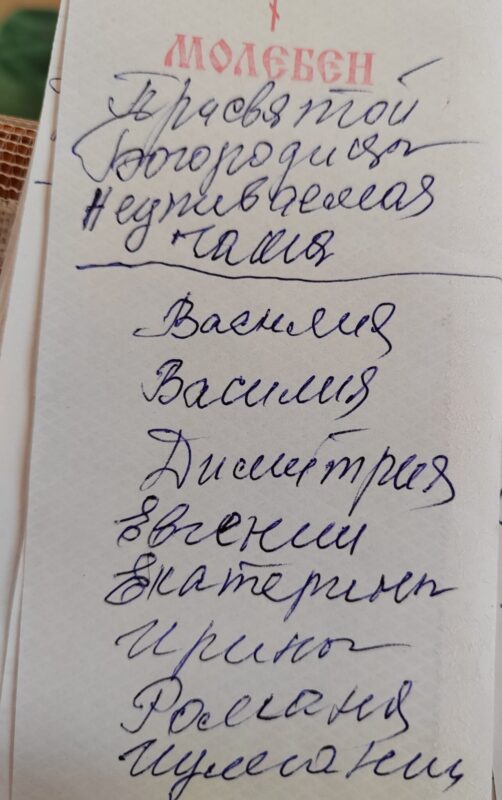 МОЛЕБЕН
Пресвятой
Богородицы
Неупиваемая
чаша
Василия
Василия
Димитрия
Евгении
Екатерины
Ирины
Романа